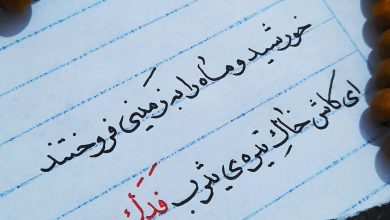 خورشید و ماه را به زمینی فروختند
ای کاش خاک تیره‌ی یثرب فَدَک